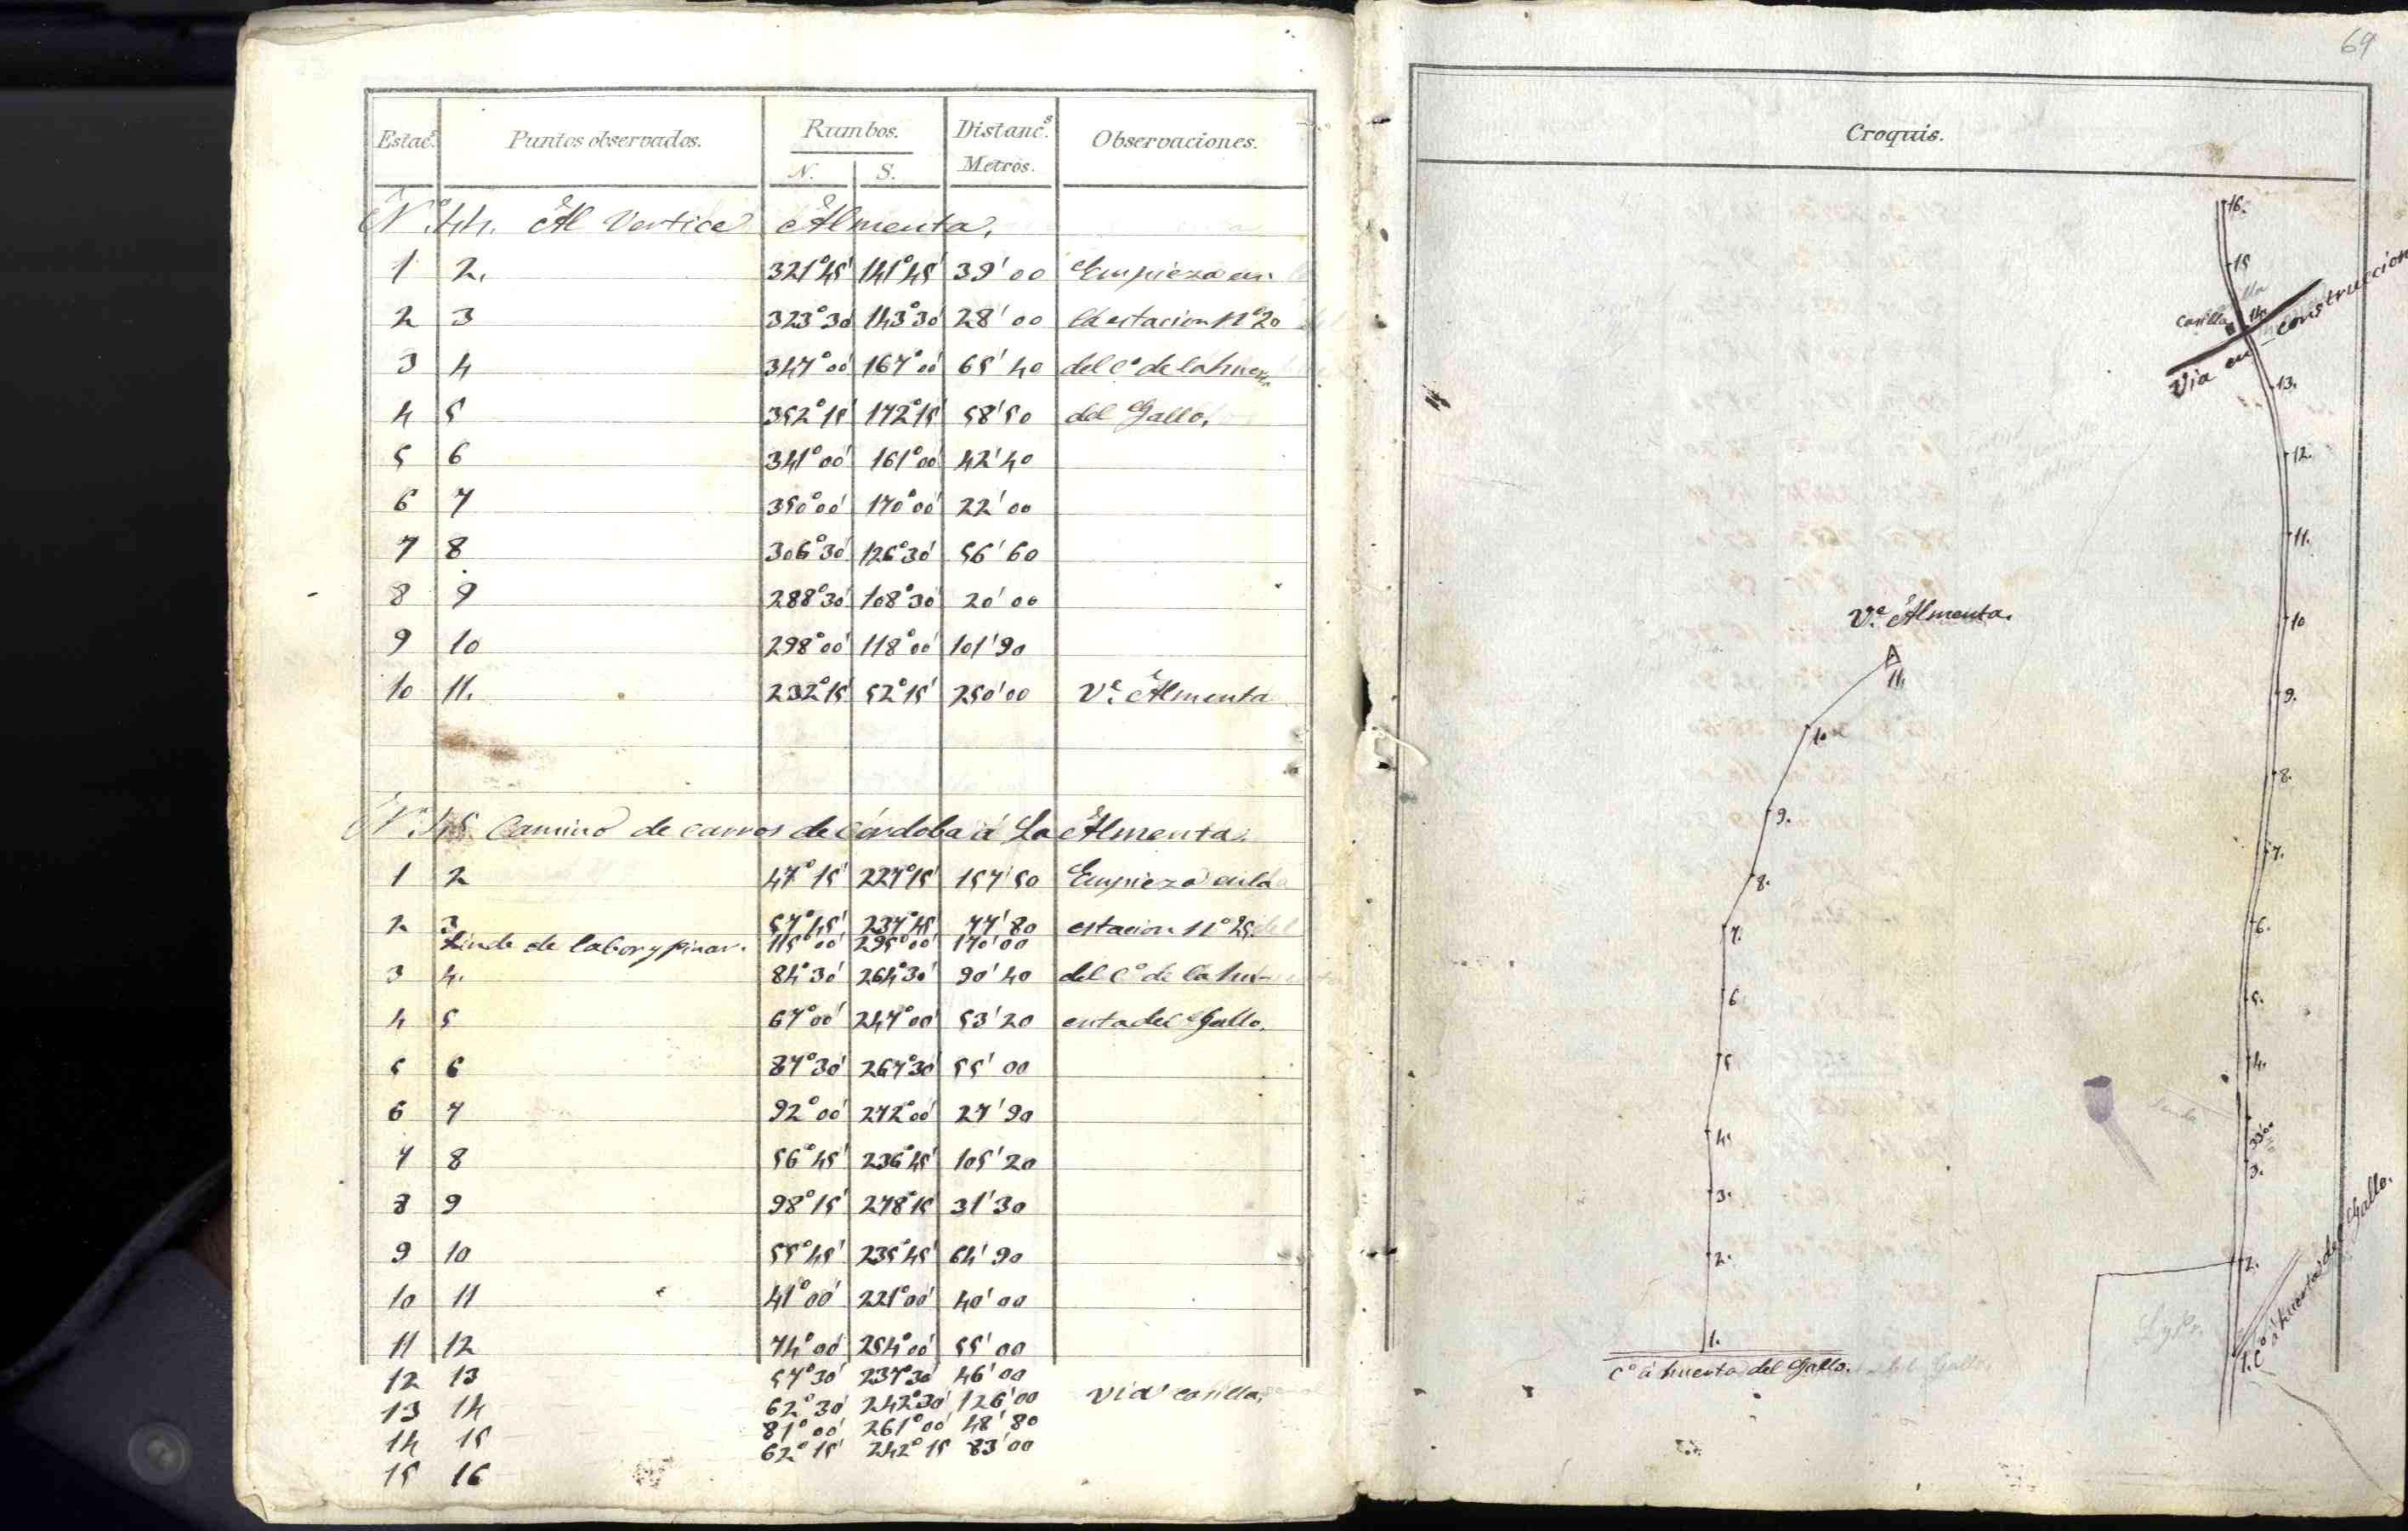 Estac.s Puntos observados. Rumbos. Distanc.s Observaciones.
N. S. Metros.
N.º 44. Al Vertice Almenta.
1 2. 321°45' 141°45' 39'00 Empieza en
2 3 323°30' 143°30' 28'00 la estacion n.º 20
3 4 347°00' 167°00' 65'40 del C.º de la huer
4 5 352°15' 172°15' 58'50 del Gallo.
5 6 341°00' 161°00' 42'40
6 7 350°00' 170°00' 22'00
7 8 306°30' 126°30' 56'60
8 9 288°30' 108°30' 20'00
9 10 298°00' 118°00' 101'90
10 11. 232°15' 52°15' 250'00 V.e Almenta
N.º 45 Camino de carros de Córdoba á La Almenta.
1 2 47°15' 227°15' 157'50 Empieza en la
2 3 57°45' 237°45' 77'80 estacion n.º 25 del
Linde de labor y pinar. 115°00' 295°00' 170'00
3 4. 84°30' 264°30' 90'40 del C.º de la hu-
4 5 67°00' 247°00' 53'20 erta del Gallo.
5 6 87°30' 267°30' 55'00
6 7 92°00' 272°00' 27'90
7 8 56°45' 236°45' 105'20
8 9 98°15' 278°15' 31'30
9 10 55°45' 235°45' 64'90
10 11 41°00' 221°00' 40'00
11 12 74°00' 254°00' 55'00
12 13 57°30' 237°30' 46'00
13 14 62°30' 242°30' 126'00 Via casilla
14 15 81°00' 261°00' 48'80
15 16 62°15' 242°15' 83'00
69
Croquis.
16.
15
casilla 14.
Via en construccion
13.
12.
11.
10
9.
8.
7.
6.
5.
4.
Linde
33'00
3.
2.
1.
C.º á huerta del Gallo.
V.e Almenta.
11.
10
9.
8.
7.
6
5
4.
3.
2.
1.
C.º á huerta del Gallo.